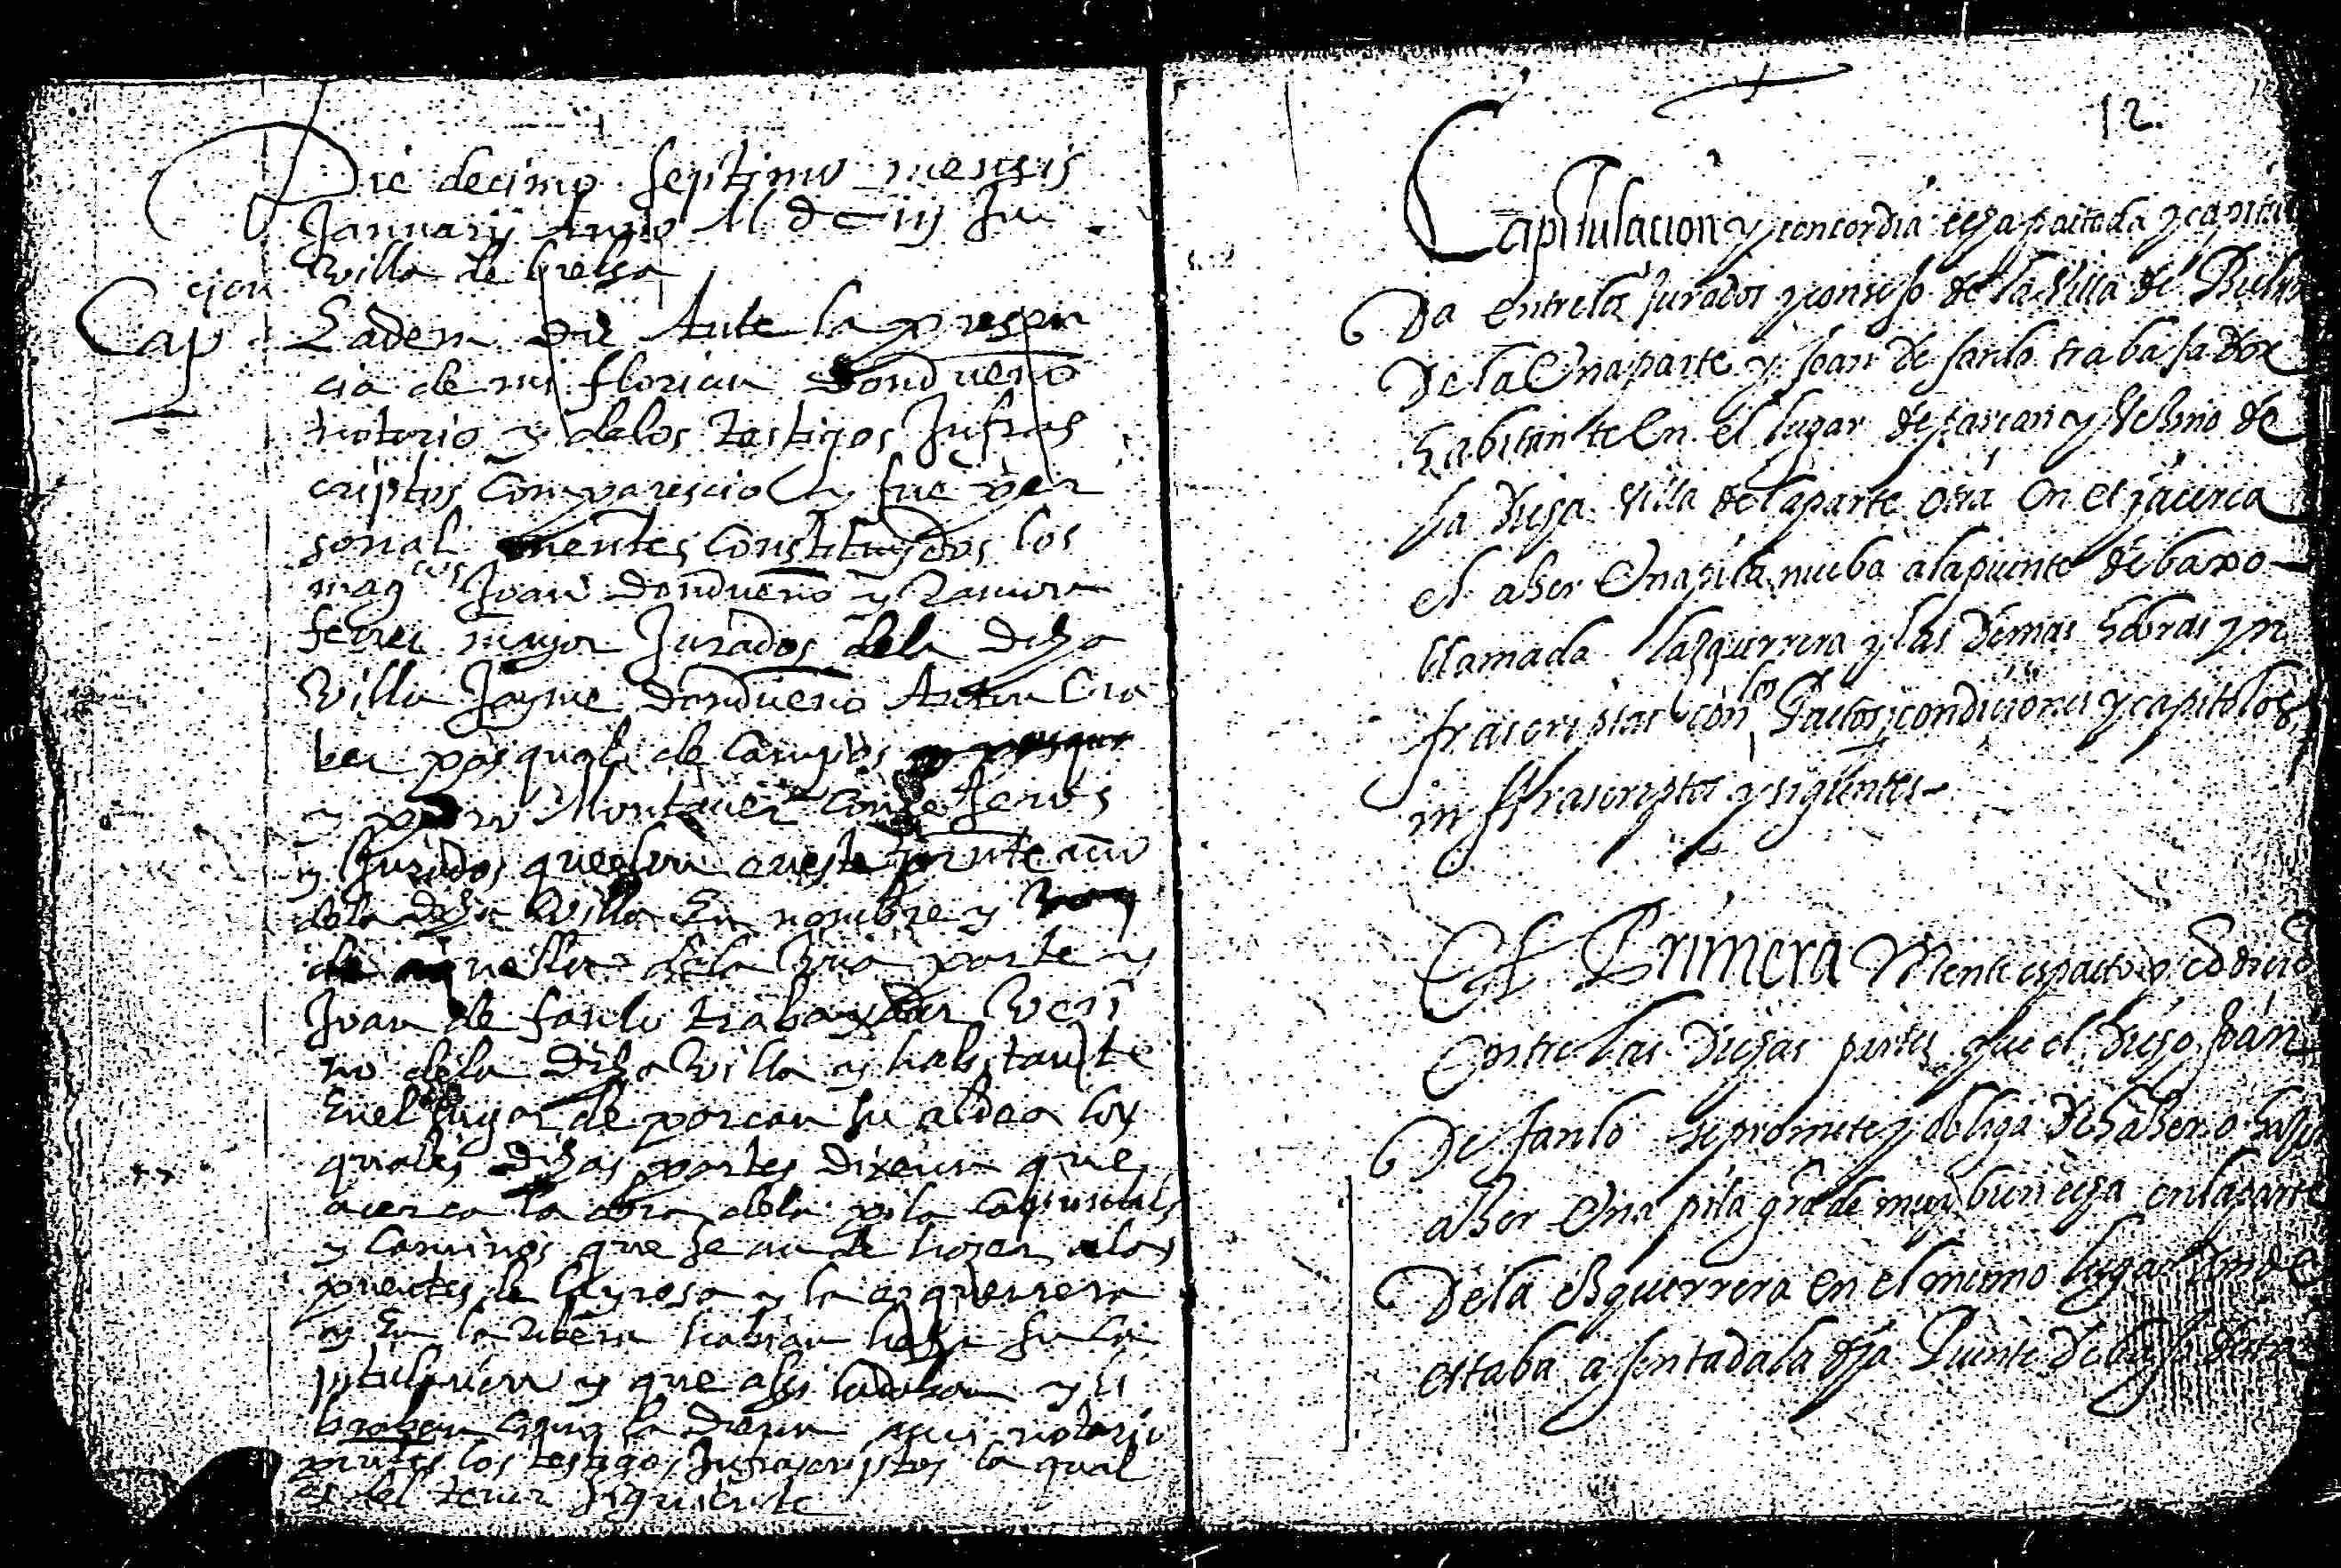 Die decimo septimo mensis
Januarÿ Anno M d C iij In
villa de bielsa
Capcion
Eadem die Ante la presen
cia de mi florian Dondueño
notario y delos testigos Infras
criptos Comparescio y fue per
sonal mentes Constituydos los
magcos Joan Dondueño y Ramon
ferrer mayor Jurados dela dicha
villa Jayme Dondueño Anton
ber pasqual de Campos
y Montaner Conselleros
y Jurados que son en este pnte año
dela dicha villa En nombre y
de aquella dela una parte y
Joan de fanlo trabaxador vezi
no dela dicha villa y habitante
En el lugar de parcan su aldea los
quales dichas partes dixeron que
acerca la obra dela pila
y Caminos que se an de hazer a los
puentes de y la ezquerrera
y En la habian hecha su Ca
pitulacion y que assi la daban y li
braban como la dieron a mi notario
pntes los testigos Infrascriptos la qual
es del tenor siguiente
12.
Capitulacion y concordia echa pactada y capitula
Da entre los Jurados y consejo de la Villa de Bielsa
De la Una parte y Joan De fanlo trabaJador
habitante En el lugar de parcan y Vezino de
La dicha villa de la parte otra en et Jacerca
el aZer Una pila nueba a la puente de baxo
llamada lazquerrera y las demas hobras yn
frascriptas con los Pactos condiciones y capitolos
inffrascriptos y siguientes
Et Primera Mente es pacto y
Entre las dichas partes que el dicho Joan
De fanlo se promete y obliga De haZer o
aZer Una pila grãde muy bien echa en la parte
De la eZguerrera en el mesmo lugar
estaba asentada la dja Puente